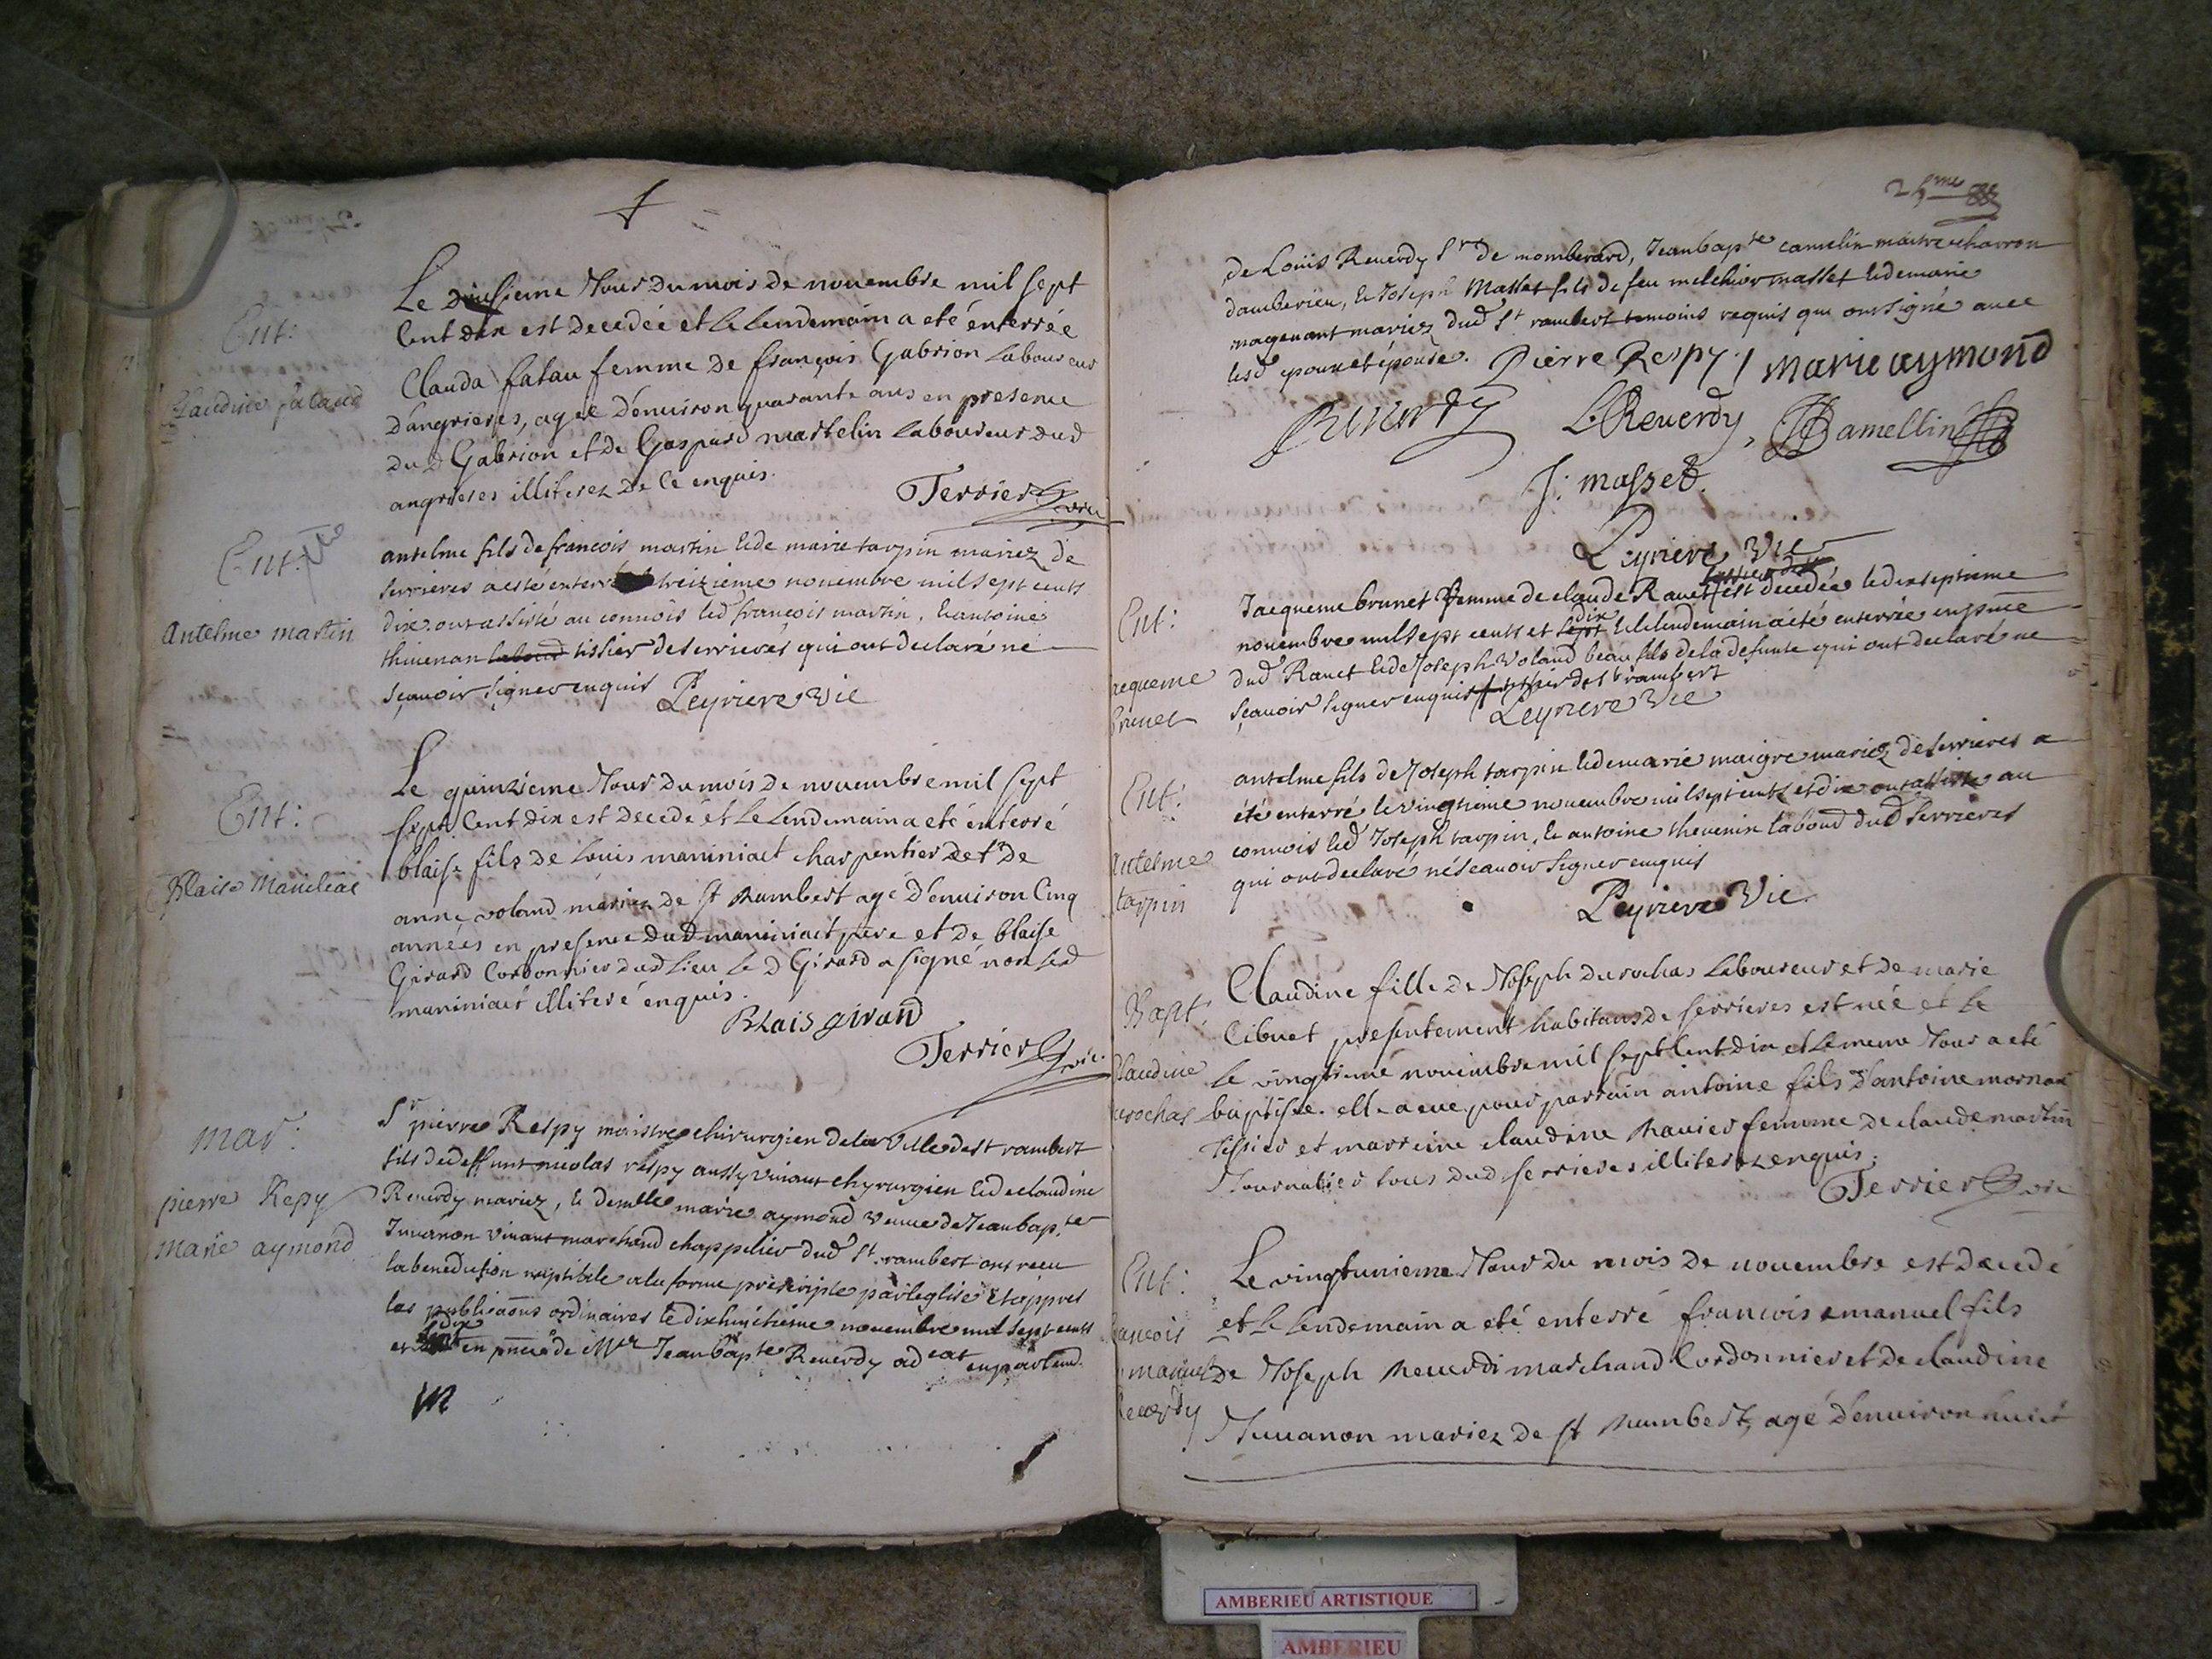 Ent:
Claudine fataud
Le douzieme Jour du mois de novembre mil sept
Cent dix est decedée et le lendemain a eté enterrée
Clauda fatau femme de françois Gabrion laboureur
d'angrieres, agée d'environ quarante ans en presence
dud Gabrion et de Gaspard martelin laboureur dud
angrieres illiterez de ce enquis.
Terrier vic
Ent:
Antelme martin
antelme fils de francois martin & de marie tarpin mariez de
serrieres a esté enterré le treizieme novembre mil sept cents
dix. ont assisté au connois led francois martin, & antoine
thevenan tissier de serrieres qui ont declaré ne
sçavoir signer enquis Peyriere Vic
Ent:
Blaise Maniniac
Le quinzieme Jour du mois de novembre mil sept
sept Cent dix est decedé et le lendemain a eté enterré
blaise fils de Louis maniniact charpentier et de
anne voland mariez de St Rambert agé d'environ Cinq
années en presence dud maniniact pere et de blaise
Girard Cordonnier dud lieu le d Girard a signé non led
maniniact illiteré enquis.
BLais girard
Terrier vic.
mar:
pierre Repy
Marie aymond
Sr pierre Respy maistre chirurgien de la Ville de st rambert
fils de deffunt nicolas respy aussy vivant chyrurgien & de claudine
Reverdy mariez, & demlle marie aymond veuve de Jean bapte
Juvanon vivant marchand chappelier dud St rambert ont receu
la benediction nuptiale a la forme prescripte par l'eglise & appres
les publicaons ordinaires le dixhuictieme novembre mil sept cents
et dix en pnce de Mre Jean bapte Reverdy adcat en parlemt.
25me
de Loüis Reverdy Sr de momberard, Jean bapte camelin maitre charron
damberieu, & Joseph Masset fils de feu melchior masset & de marie
magenant mariez dud St rambert temoins requis qui ont signé avec
lesd epoux et épouse. Pierre Respy / marie aymond
Reverdy LReverdy, JBamellin
J: masset.
Peyriere Vic
Ent:
Jaequeme
brunet
Jacqueme brunet femme de claude Ravet est decedée le dixseptieme
novembre mil sept cents et dix & le lendemain a été enterrée en pnce
dud Ravet & de Joseph Voland beau fils de la defunte qui ont declaré ne
sçavoir signer enquis tissier de St rambert
Peyriere Vic
Ent:
Antelme
tarpin
antelme fils de Joseph tarpin & de marie maigre mariez de serrieres a
été enterré le vingtieme novembre mil sept cents et dix ont assisté au
connois led Joseph tarpin, & antoine thevenin labour dud serrieres
qui ont declaré ne sçavoir signer enquis
Peyriere Vic
Bapt:
Claudine
durochas
Claudine fille de Joseph durochas laboureur et de marie
Cibuet presentement habitans de serrieres est née et le
le vingtieme novembre mil sept Cent dix et le meme Jour a eté
baptisée. elle a eue pour parrain antoine fils d'antoine mornai
tissier et marreine claudine Ravier femme de claude martin
Journalier tous dud serrieres illiterez enquis.
Terrier vic
Ent:
francois
emanuel
Reverdy
Le vingtunieme Jour du mois de novembre est decedé
et le lendemain a eté enterré francois emanuel fils
de Joseph Reverdi marchand Cordonnier et de claudine
Juvanon mariez de st Rambert, agé d'environ huict
AMBERIEU ARTISTIQUE
AMBERIEU